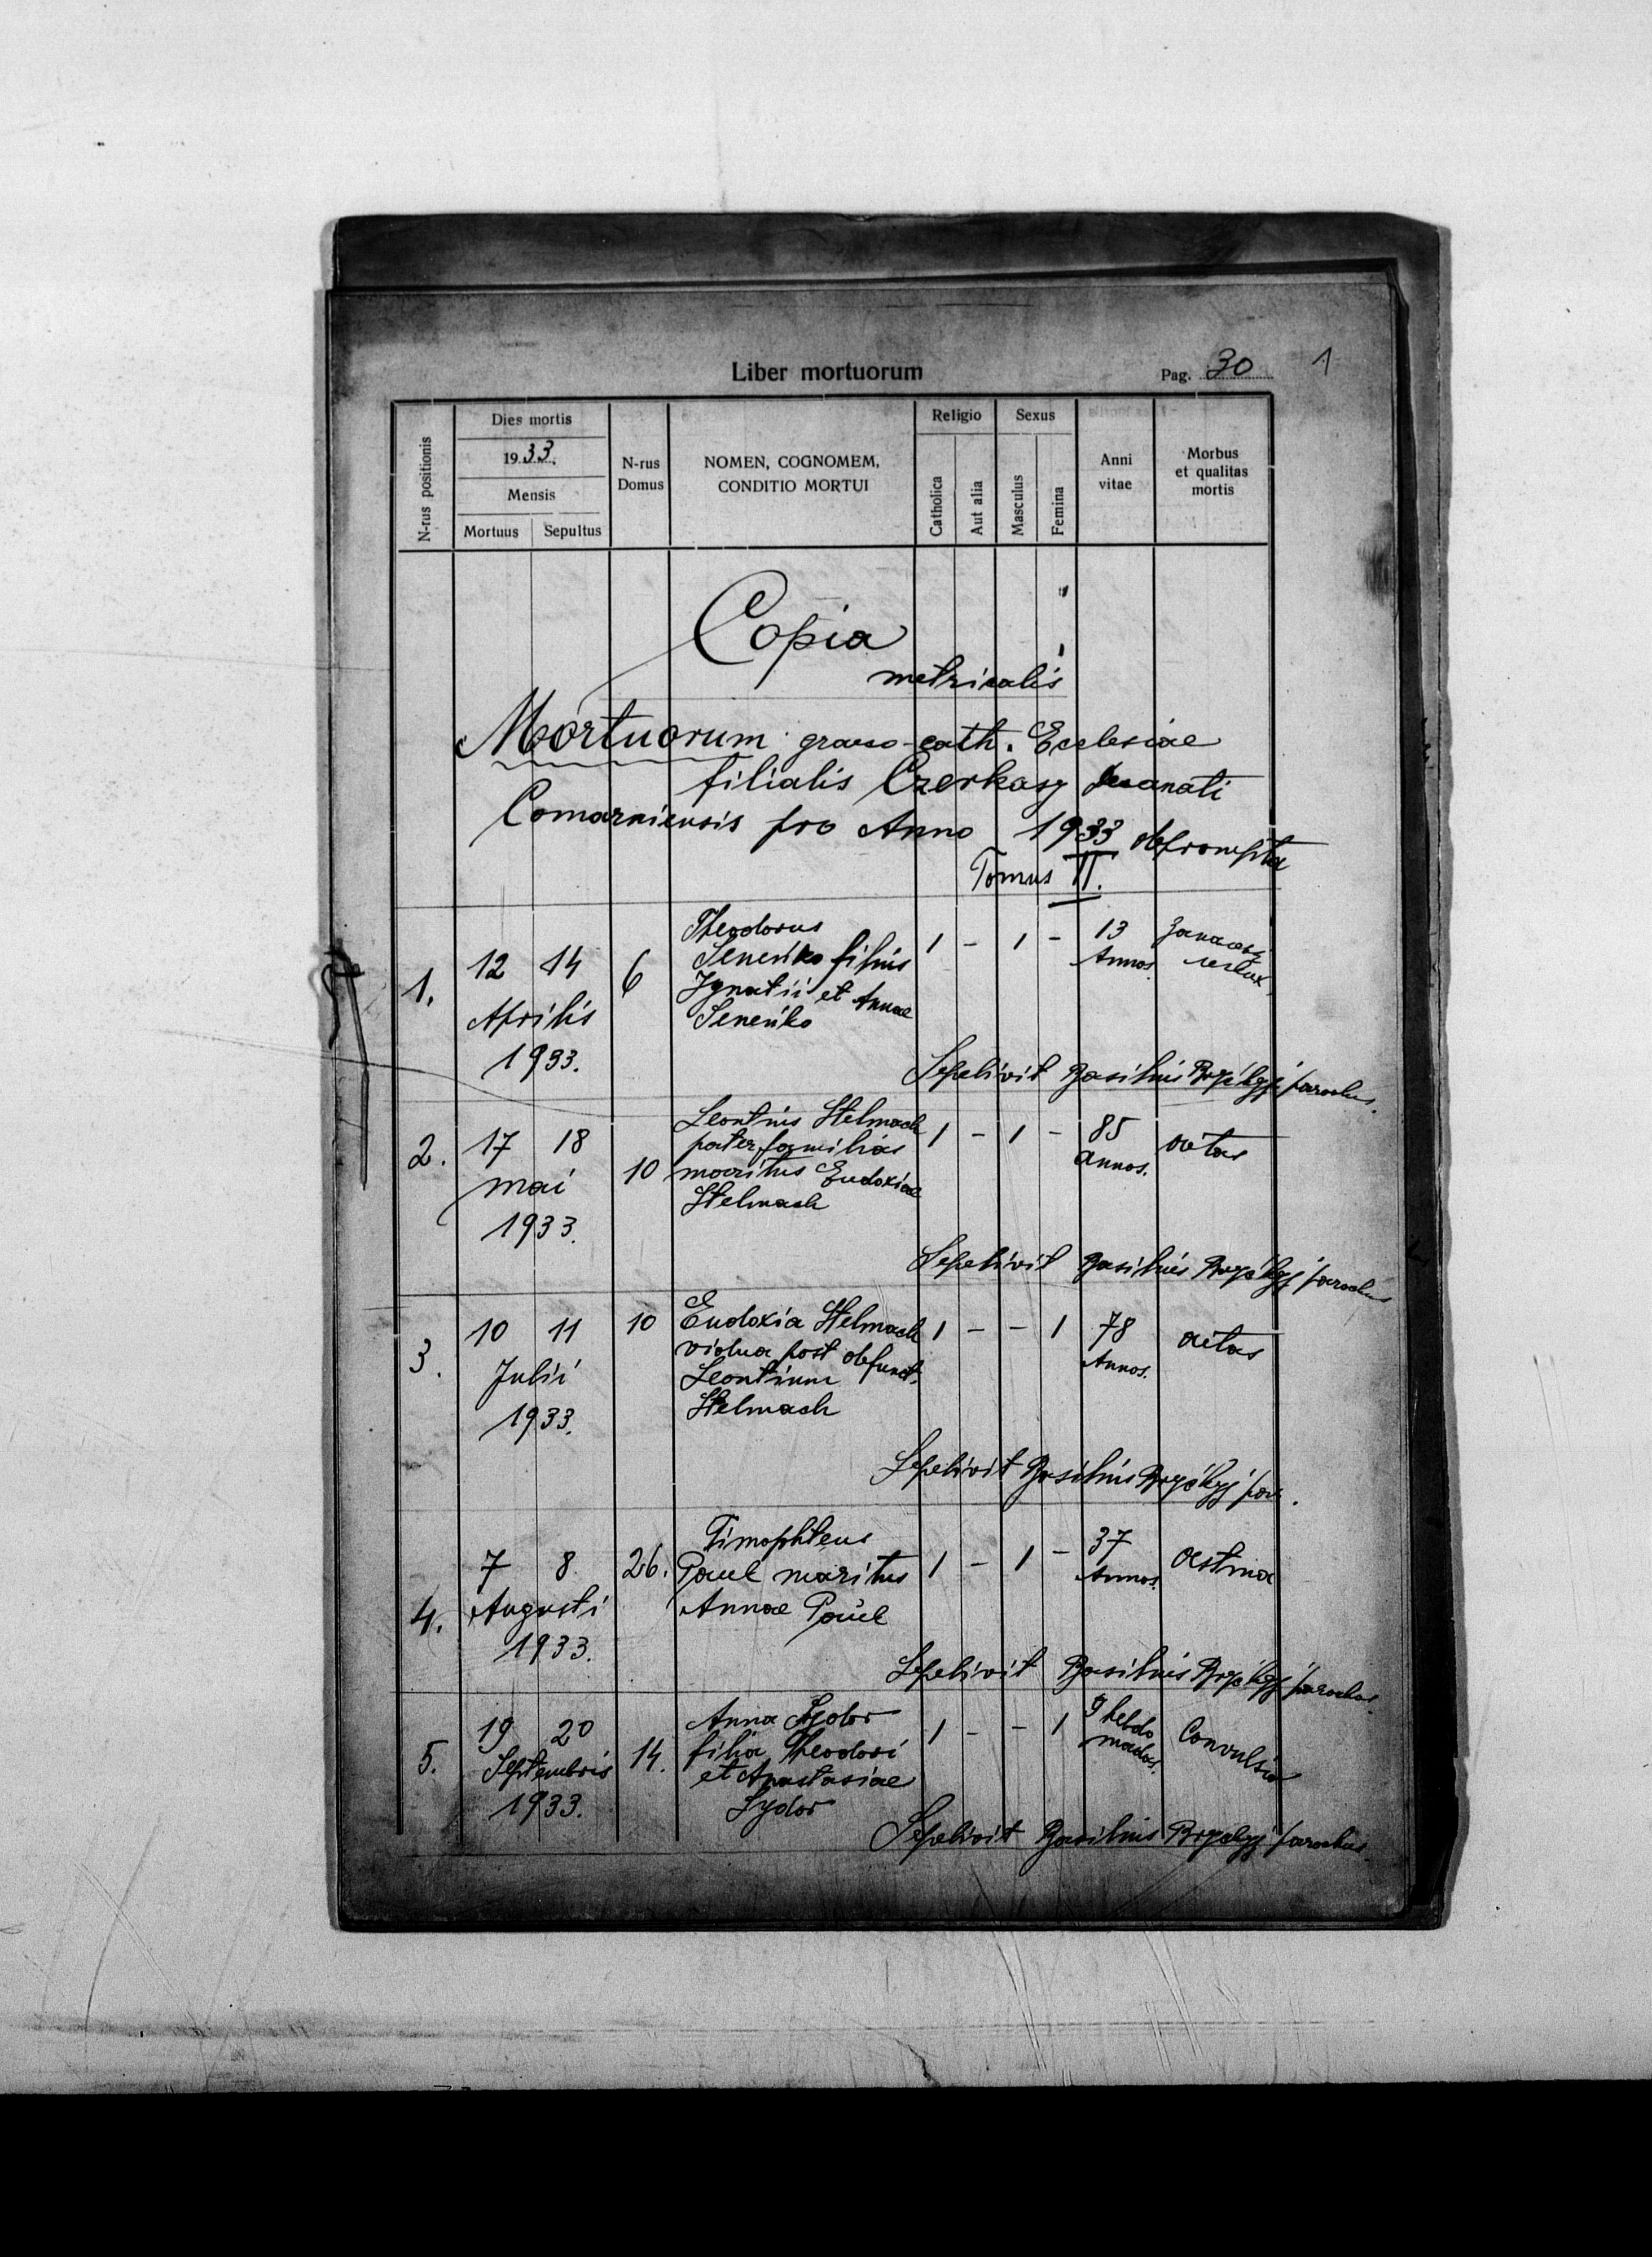 Liber mortuorum
Pag. 30
1
N-rus positionis
Dies mortis
1933.
Mensis
Mortuus
Sepultus
N-rus
Domus
NOMEN, COGNOMEM,
CONDITIO MORTUI
Religio
Catholica
Aut alia
Sexus
Masculus
Femina
Anni
vitae
Morbus
et qualitas
mortis
Copia
metricalis
Mortuorum graeco-cath. Ecclesiae
filialis Czerkasy decanati
Comarniensis pro Anno 1933 deprompta
Tomus II.
1.
12 14
Aprilis
1933.
6
Theodorus
Seneńko filius
Ignatii et Annae
Seneńko
1 - 1 -
13
Annos.
Sepelivit Basilius parochus.
2.
17 18
mai
1933.
10
Leontius Stelmach
pater familias
maritus Eudoxiae
Stelmach
1 - 1 -
85
annos.
aetas
Sepelivit Basilius parochus
3.
10 11
Julii
1933.
10
Eudoxia Stelmach
vidua post defunct.
Leontium
Stelmach
1 - - 1
78
Annos.
aetas
Sepelivit Basilius par.
4.
7 8.
Augusti
1933.
26.
Timophteus
Pauel maritus
Annae Pauel
1 - 1 -
37
Annos.
astma
Sepelivit Basilius parochus.
5.
19 20
Septembris
1933.
14.
Anna Sydor
filia Theodori
et Anastasiae
Sydor
1 - - 1
9 hebdo
madas.
Convulsio
Sepelivit Basilius parochus.